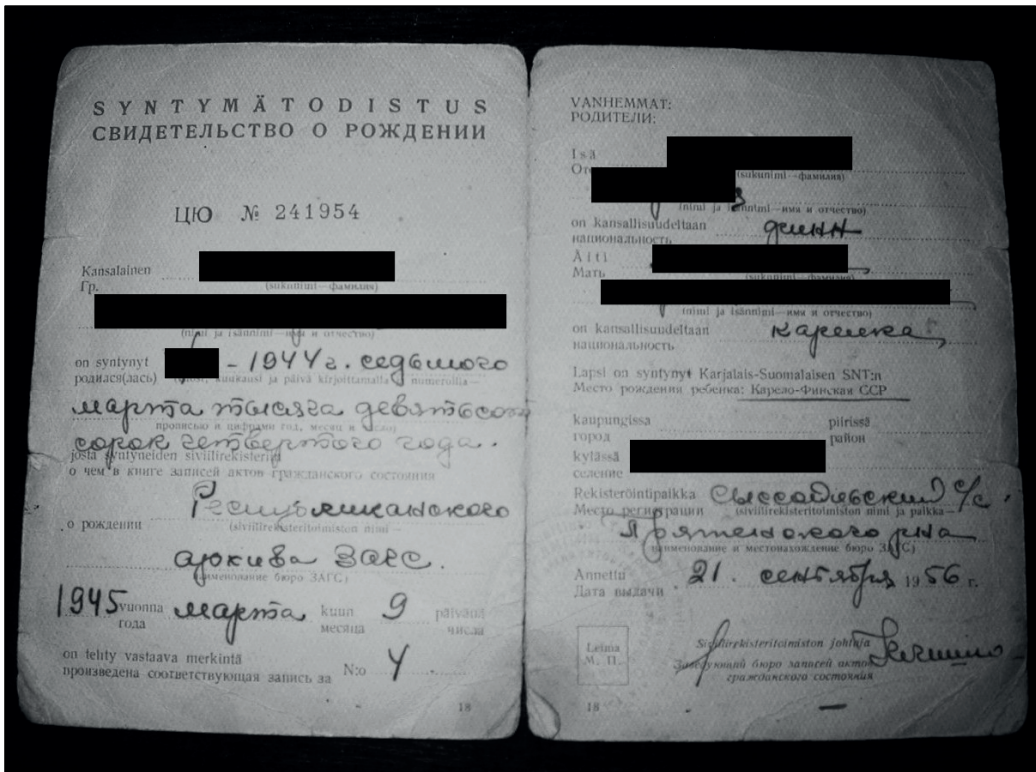 SYNTYMÄTODISTUS
СВИДЕТЕЛЬСТВО О РОЖДЕНИИ
ЦЮ № 241954
Kansalainen
Гр.
(sukunimi—фамилия)
(nimi ja isännimi—имя и отчество)
on syntynyt - 1944 г. седьмого
родился(лась) kuukausi ja päivä kirjoittamalla numeroilla—
марта тысяча девятьсот
прописью и цифрами год, месяц и число)
сорок четвертого года.
josta syntyneiden siviilirekisteriin
о чем в книге записей актов гражданского состояния
Республиканского
о рождении (siviilirekisteritoimiston nimi—
архива ЗАГС.
наименование бюро ЗАГС)
1945 vuonna марта kuun 9 päivänä
года месяца числа
on tehty vastaava merkintä
произведена соответствующая запись за N:o 4
18
VANHEMMAT:
РОДИТЕЛИ:
Isä
(sukunimi—фамилия)
(nimi ja isännimi—имя и отчество)
on kansallisuudeltaan финн
национальность
Äiti
Мать (sukunimi—фамилия)
(nimi ja isännimi—имя и отчество)
on kansallisuudeltaan карелка
национальность
Lapsi on syntynyt Karjalais-Suomalaisen SNT:n
Место рождения ребенка: Карело-Финская ССР
kaupungissa piirissä
город район
kylässä
селение
Rekisteröintipaikka с/с.
Место регистрации (siviilirekisteritoimiston nimi ja paikka—
р-на
наименование и местонахождение бюро ЗАГС)
Annettu 21. сентября 1956 г.
Дата выдачи
Leima
М. П.
Siviilirekisteritoimiston johtaja
Заведующий бюро записей актов
гражданского состояния
18